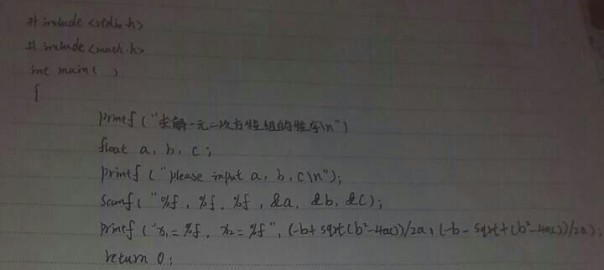 # include <stdio.h>
# include <math.h>
int main( )
{
printf ("求解一元二次方程组的程序\n")
float a, b, c;
printf ("please input a, b, c\n");
scanf ( "%f, %f, %f, &a, &b, &c);
printf ("x₁ = %f, x₂ = %f", (-b+ sqrt(b²-4ac))/2a, (-b - sqrt(b²-4ac))/2a);
return 0;